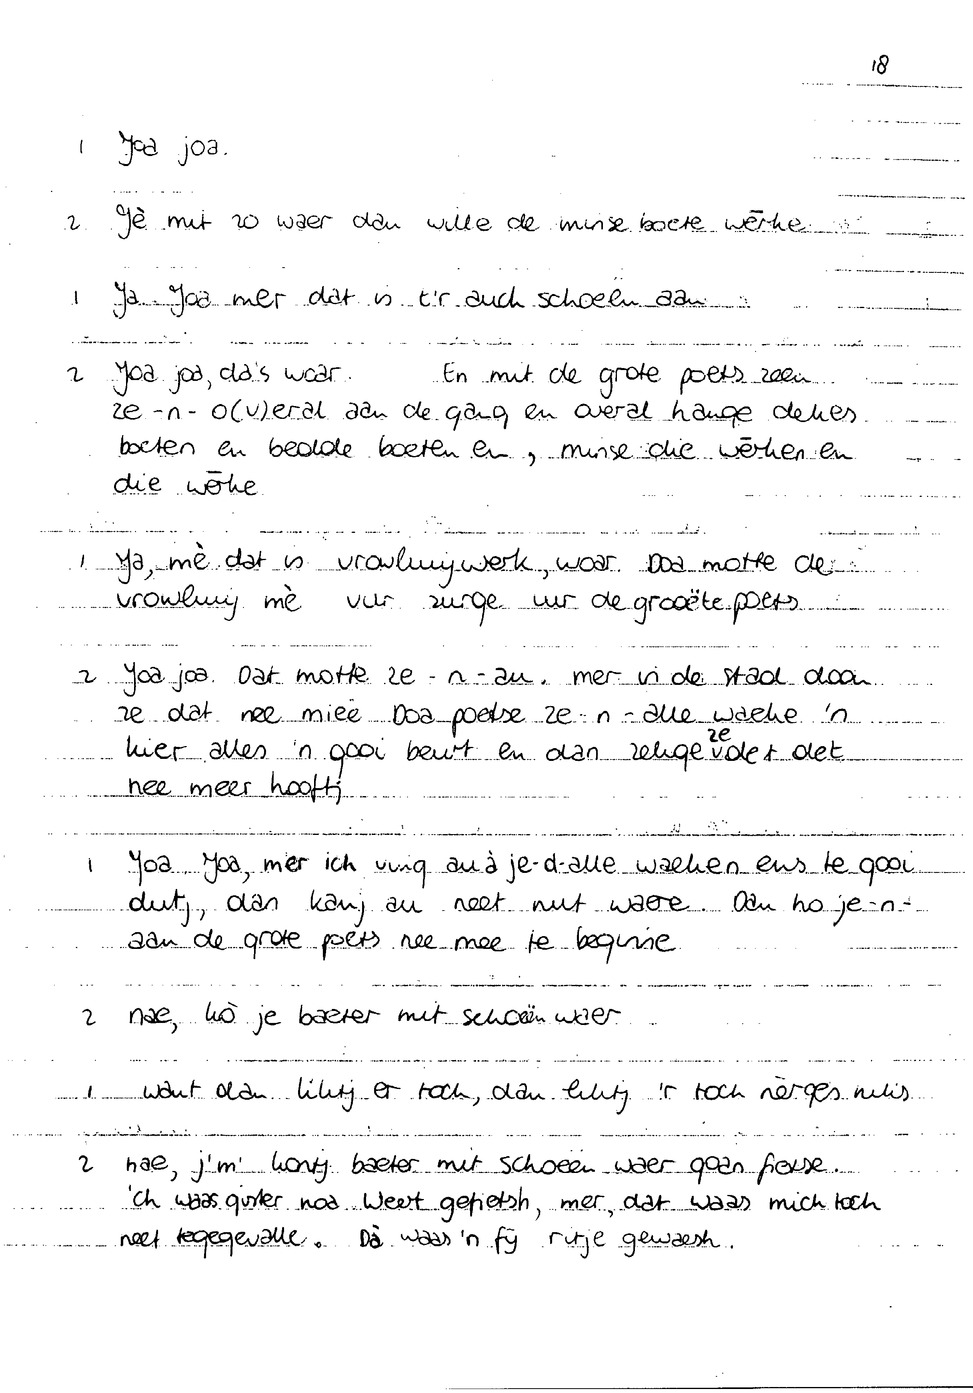 18
1 Joa joa.
2 Jè mit zo waer dan wille de minse boete wērke
1 Ja. Joa mer dat is t'r auch schoeën aan
2 Joa joa, da's woar. En mit de grote poets zeen
ze -n- o(v)eral aan de gang en overal hange dekes
boeten en bedde boeten en, minse die wērken en
die wērke
1 Ja, mè dat is vrowluujwerk, woar. Doa motte de
vrowluuj mè vur zurge uur de grooëte poets
2 Joa joa. Dat motte ze -n- au. mer in de stad doon
ze dat nee mieë Doa poetse ze -n- alle waeke 'n
kier alles 'n gooi beurt en dan zelige ze voler det
nee meer hooftj
1 Joa Joa, mer ich ving au à je-d-alle waeken ens te gooi
dutj, dan kanj au neet nut waere. Dan ho je-n-
aan de grote poets nee mee te beginne
2 nae, kò je baeter mit schoeën waer
1 want dan likitj er toch, dan likitj 'r toch nèrges nikis
2 nae, j'm' kontj baeter mit schoeën waer goan fietse.
'ch waas gister noa Weert gefietsh, mer, dat waas mich toch
neet tegegevalle. Dà waas 'n fij ritje gewaesh.